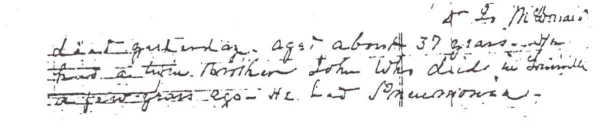 McDonald
died yesterday. aged about 37 years. He
had a twin Brother John Who died in Louisville
a few years ago. He had Pneumonia.